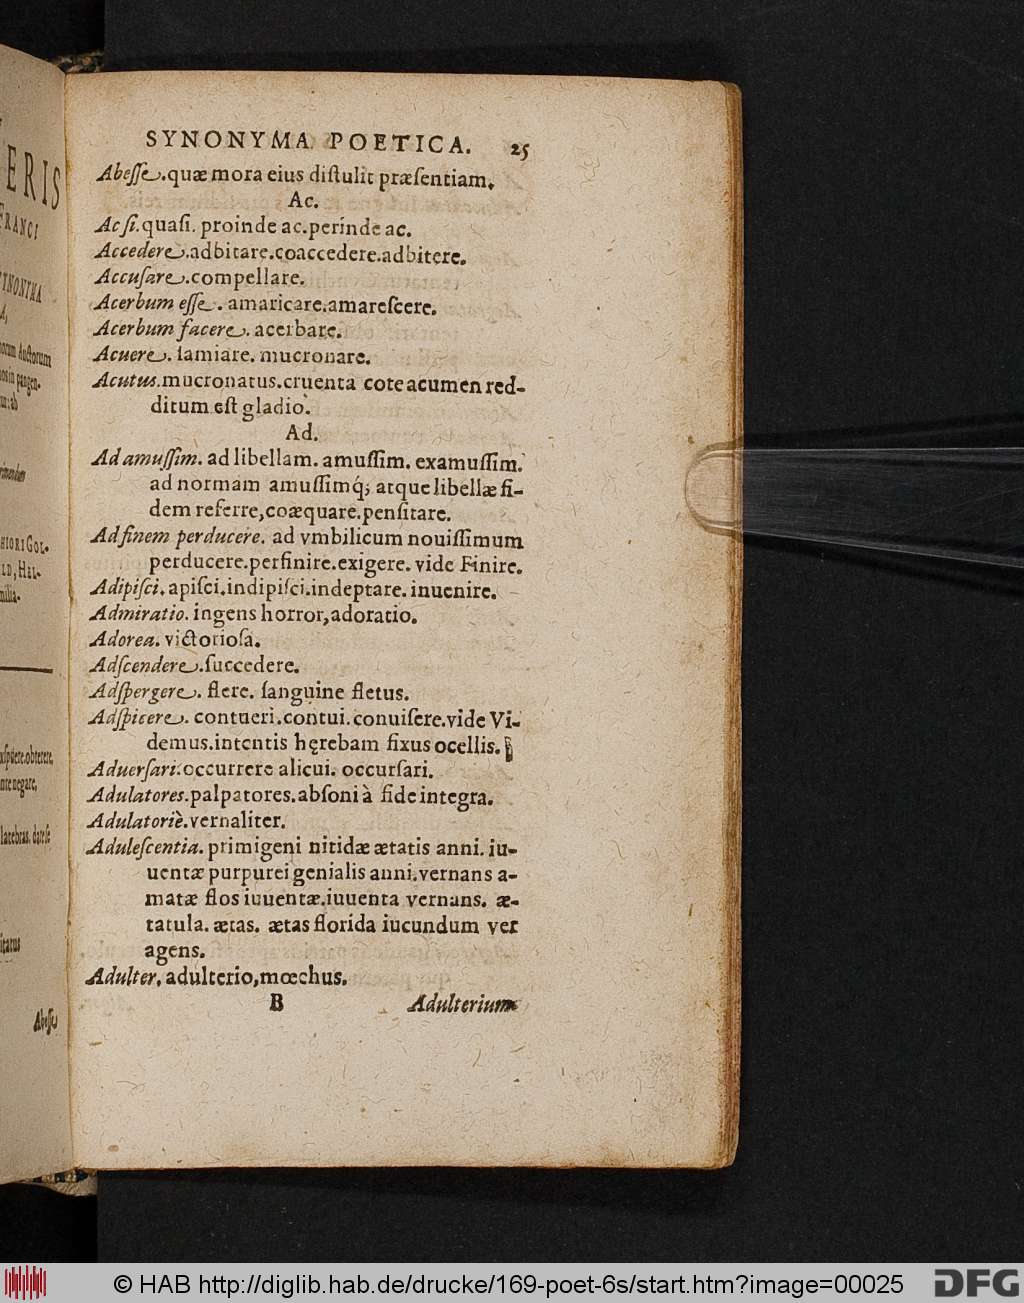 ERIS
FRANCI
SYNONYMA POETICA. 25
Abeſſe.quæ mora eius diſtulit præſentiam.
Ac.
Ac ſi.quaſi. proinde ac.perinde ac.
Accedere.adbitare.coaccedere.adbitere.
Accuſare.compellare.
Acerbum eſſe. amaricare.amareſcere.
Acerbum facere. acerbare.
Acuere. ſamiare. mucronare.
Acutus.mucronatus.cruenta cote acumen red-
ditum eſt gladio.
Ad.
Ad amuſſim. ad libellam. amuſſim. examuſſim.
ad normam amuſſimq́; atque libellæ fi-
dem referre,coæquare.penſitare.
Ad finem perducere. ad vmbilicum nouiſſimum
perducere.perfinire.exigere. vide Finire.
Adipiſci. apiſci.indipiſci.indeptare. inuenire.
Admiratio. ingens horror,adoratio.
Adorea. victorioſa.
Adſcendere.ſuccedere.
Adſpergere. flere. ſanguine fletus.
Adſpicere. contueri.contui.conuiſere.vide Vi-
demus.intentis hęrebam fixus ocellis.
Aduerſari.occurrere alicui. occurſari.
Adulatores.palpatores.abſoni à fide integra.
Adulatoriè.vernaliter.
Aduleſcentia. primigeni nitidæ ætatis anni. iu-
uentæ purpurei genialis anni.vernans a-
matæ flos iuuentæ.iuuenta vernans. æ-
tatula. ætas. ætas florida iucundum ver
agens.
Adulter. adulterio,mœchus.
B Adulterium
Abeſſe
© HAB http://diglib.hab.de/drucke/169-poet-6s/start.htm?image=00025
DFG